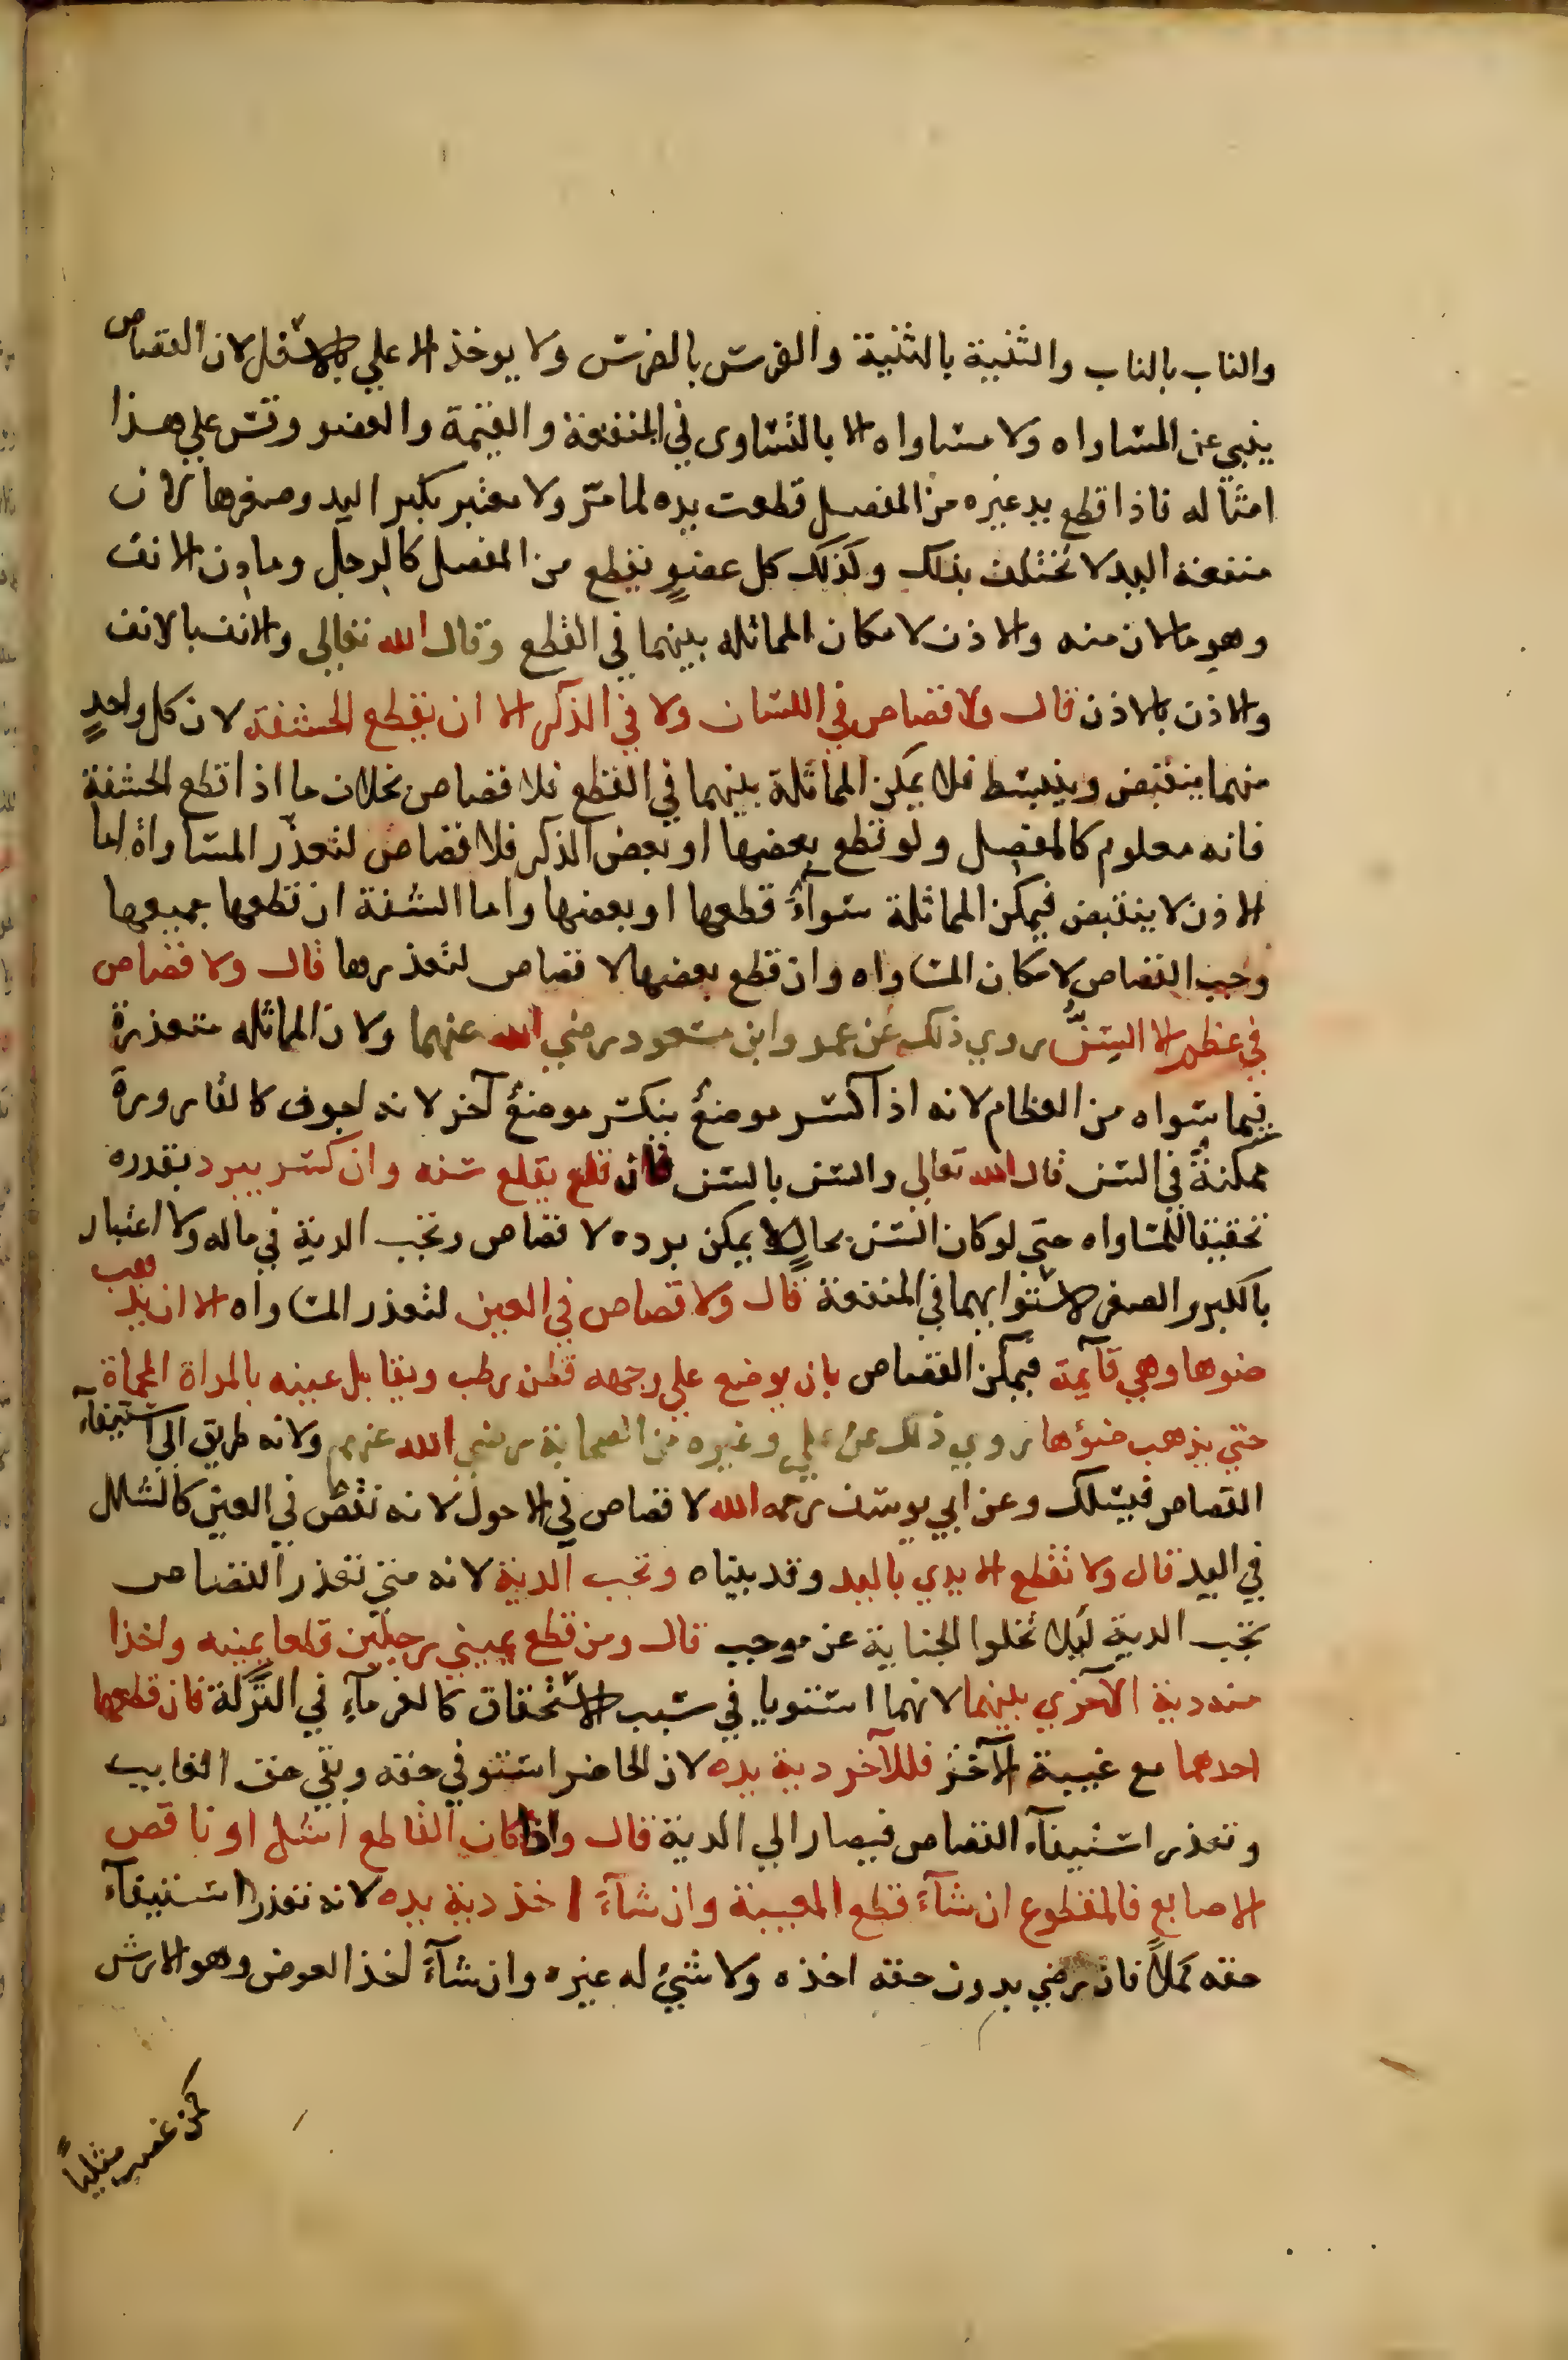 والناب بالناب والثنية بالثنية والضرس بالضرس ولا يوخذ الاعلي بالاسفل لان القصاص
ينبي عن المساواه ولا مساواه الا بالتساوى في المنفعة والقيمة والعضو وقس علي هذا
امثاله فاذا قطع يد غيره من المفصل قطعت يده لما مر ولا معتبر بكبر اليد وصغرها لان
منفعة اليد لا تختلف بذلك وكذلك كل عضو يقطع من المفصل كالرجل ومارن الانف
وهو مالان منه والاذن لامكان المماثله بينهما في القطع وقال الله تعالي والانف بالانف
والاذن بالاذن قال ولا قصاص في اللسان ولا في الذكر الا ان يقطع الحشفة لان كل واحدٍ
منهما ينقبض وينبسط فلا يمكن المماثلة بينهما في القطع فلا قصاص بخلاف ما اذا قطع الحشفة
فانه معلوم كالمفصل ولو قطع بعضها او بعض الذكر فلا قصاص لتعذّر المساواة اما
الاذن لا ينقبض فيمكن المماثلة سوآءً قطعها او بعضها واما الشفة ان قطعها جميعها
وجب القصاص لامكان المساواه وان قطع بعضها لا قصاص لتعذرها قال ولا قصاص
في عظم الا السِنُّ روي ذلك عن عمر وابن مسعود رضي الله عنهما ولان المماثله متعذرة
فيما سواه من العظام لانه اذا كسر موضعٌ ينكسر موضعٌ آخر لانه اجوف كالقارورة
ممكنةٌ في السن قال الله تعالي والسن بالسن فان قلع يقلع سنه وان كسر يبرد بقدره
تحقيقا للمساواه حتى لو كان السن بحالٍ لا يمكن برده لا قصاص وتجب الدية في ماله ولا اعتبار
بالكبر والصغر لاستوايهما في المنفعة قال ولا قصاص في العين لتعذر المساواه الا ان يذهب
ضوها وهي قآيمة فيمكن القصاص بان يوضع علي وجهه قطن رطب ويقابل عينه بالمراة المحماة
حتي يذهب ضوٌها روي ذلك عن علي وغيره من الصحابة رضي الله عنهم ولانه طريق الي استيفآء
القصاص فيسلك وعن ابي يوسف رحمه الله لا قصاص في الاحول لانه نقص في العين كالشلل
في اليد قال ولا تقطع الايدي باليد وقد بيناه وتجب الدية لانه متي تعذر القصاص
تجب الدية ليلا تخلوا الجناية عن موجب قال ومن قطع يميني رجلين قطعا يمينه واخذا
منه دية الآخري بينهما لانهما استويا في سبب الاستحقاق كالغرمآءِ في التركة فان قطعها
احدهما مع غيبة الآخر فللآخر دية يده لان الحاضر استوفي حقه وبقي حق الغايب
وتعذر استيفآء القصاص فيصار الي الدية قال واذا كان القاطع اشل او ناقص
الاصابع فالمقطوع ان شآءَ قطع المعيبة وان شآءَ اخذ دية يده لانه تعذر استيفآء
حقه كملاً فان رضي بدون حقه اخذه ولا شيٌ له غيره وان شآءَ اخذ العوض وهو الارش
كمن غصب مثلياً